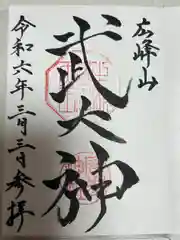 広峰山
武大神
令和六年三月三日参拝